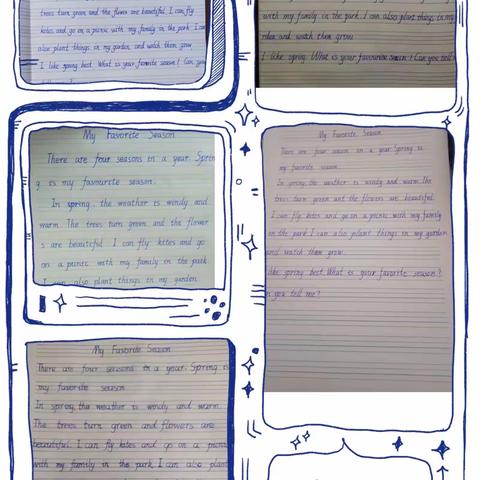 trees turn green and the flower are beautiful. I can fly
kites and go on a picnic with my family in the park. I can
also plant things in my garden, and watch them grow.
I like spring best. What is your favorite season? Can you
with my family in the park. I can also plant things in my
and watch them grow
I like spring. What is your favourite season? Can you tell
My Favorite Season
There are four seasons in a year. Sprin
g is my favourite season.
In spring, the weather is windy and
warm. The trees turn green and the flower
s are beautiful. I can fly kites and go
on a picnic with my family in the park
I can also plant things in my garden
My Favorite Season
There are four season in a year. Spring is
my favorite season.
In spring, the weather is windy and warm. The
trees turn green and the flowers are beautiful.
I can fly kites and go on a picnic with my family
in the park. I can also plant things in my garden
and watch them grow.
like spring best. What is your favorite season?
n you tell me?
My Favorite Season
There are four seasons in a year. Spring is
my favorite season
In spring, the weather is windy and warm.
The trees turn green and flowers are
beautiful. I can fly kites and go on a picnic
with my family in the park. I can also plant